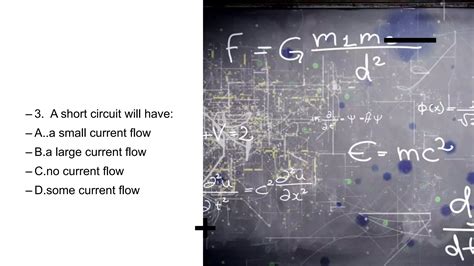 – 3. A short circuit will have:
– A..a small current flow
– B.a large current flow
– C.no current flow
– D.some current flow
f = G m₁m₂ / d²
ϕ(x) =
V =
ε = mc²
∂²u / ∂t² = c² ∂²u / ∂x²